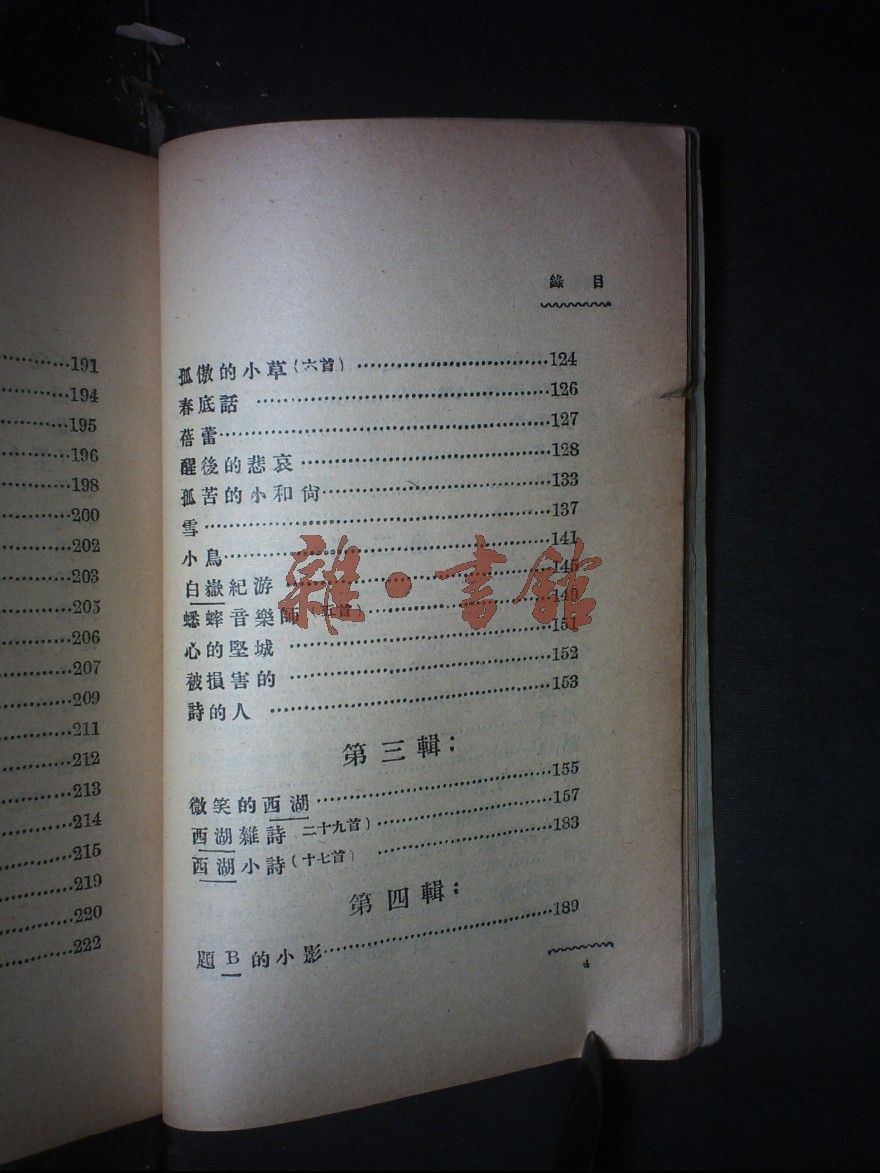 191
194
195
196
198
200
202
203
205
206
207
209
211
212
213
214
215
219
220
222
錄 目
孤傲的小草(六首)…………124
春底話…………126
蓓蕾…………127
醒後的悲哀…………128
孤苦的小和尙…………133
雪…………137
小鳥…………141
白嶽紀游…………145
蟋蟀音樂師(五首)…………149
心的堅城…………151
被損害的…………152
詩的人…………153
第三輯:
微笑的西湖…………155
西湖雜詩(二十九首)…………157
西湖小詩(十七首)…………183
第四輯:
題B的小影…………189
4
雜·書館